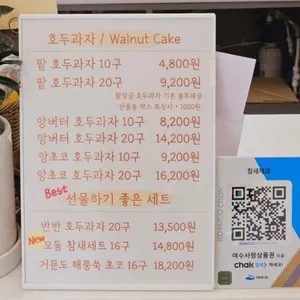 호두과자 / Walnut Cake
팥 호두과자 10구 4,800원
팥 호두과자 20구 9,200원
팥앙금 호두과자 기본 봉투제공
선물용 박스 포장시 +1000원
앙버터 호두과자 10구 8,200원
앙버터 호두과자 20구 14,200원
앙초코 호두과자 10구 9,200원
앙초코 호두과자 20구 16,200원
Best
선물하기 좋은 세트
반반 호두과자 20구 13,500원
New
모둠 참새세트 16구 14,800원
거문도 해풍쑥 초코 16구 18,200원
참새제과
여수사랑상품권
chak